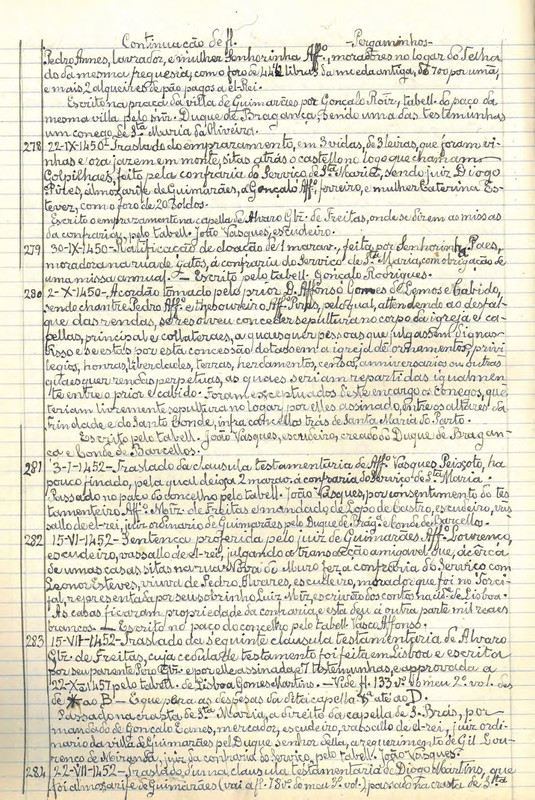 Continuação de fl. -Pergaminhos-
Pedro Annes, lavrador, e mulher Senhorinha Affº, moradores no logar do Telha
do da mesma freguesia, com o foro de 44½ libras da moeda antiga, de 700 por uma,
e mais 2 alqueires de pão pagos a el-Rei.
Escrito na praça da villa de Guimarães por Gonçalo Roiz, tabell. do paço da
mesma villa pelo snr. Duque de Bragança, sendo uma das testemunhas
um conego de Sta Maria da Oliveira.
278 22-IX-1450- Traslado do emprazamento, em 3 vidas, de 3 leiras, que foram vi-
nhas e ora jazem em monte, sitas atrás o castello no logo que chamam
Colpilhaes, feito pela confraria do Serviço de Sta Maria, sendo juiz Diogo
Pires, almoxarife de Guimarães, a Gonçalo Affº, ferreiro, e mulher Caterina Es-
tevez, com o foro de 20 soldos.
Escrito o emprazamento na capella de Alvaro Glz. de Freitas, onde se dizem as missas
da confraria, pelo tabell. João Vasques, escudeiro.
279 30-IX-1450- Ratificação de doação de 1 marav., feita por Senhorinha Paes,
moradora na rua de Gatos, á confraria do Serviço de Sta Maria, com obrigação de
uma missa annual. - Escrito pelo tabell. Gonçalo Rodrigues.
280 2-X-1450- Acordão tomado pelo prior D. Affonso Gomes de Lemos e Cabido,
sendo chantre Pedro Affº e thesoureiro Affº Pires, pelo qual, attendendo ao desfal-
que das rendas, se resolveu conceder sepultura no corpo da igreja e ca-
pellas, principal e collateraes, a quaesquer pessoas que julgassem dignas
disso e se estas por esta concessão dotassem a igreja de ornamentos, privi-
legios, honras, liberdades, terras, herdamentos, censos, anniversarios ou outras
quaesquer rendas perpetuas, as quaes seriam repartidas igualmen-
te entre o prior e cabido. Foram exceptuados deste encargo os conegos, que
teriam livremente sepultura no logar por elles assinado, entre os altares da
Trindade e do Santo Conde, infra concellos trás de Santa Maria do Parto.
Escrito pelo tabell. João Vasques, escudeiro, creado do Duque de Bragan-
ça e Conde de Barcellos.
281 3-1-1452- Traslado da clausula testamentaria de Affº Vasques Peixoto, ha
pouco finado, pela qual deixa 2 marav. á confraria do Serviço de Sta Maria.
Passado no paço do concelho pelo tabell. João Vasques, por consentimento do tes-
tamenteiro Affº Miz. de Freitas e mandado de Lopo de Castro, escudeiro, vas
sallo de el-rei, juiz ordinario de Guimarães pelo Duque de Brag. e conde de Barcellos.
282 15-VI-1452- Sentença proferida pelo juiz de Guimarães Affº Lourenço,
escudeiro, vassallo de el-rei, julgando a transacção amigavel que, acerca
de umas casas sitas na rua Nova do Muro fez a confraria do Serviço com
Leonor Esteves, viuva de Pedro Alvares, escudeiro, morador que foi no Torci-
fal, representada por seu sobrinho Luiz Miz, escrivão dos contos na cid. de Lisboa.
As casas ficaram propriedade da confraria, e esta deu á outra parte mil reaes
brancos. - Escrito no paço do concelho pelo tabell. Vasco Affonso.
283 15-VII-1452- Traslado da seguinte clausula testamentaria de Alvaro
Glz. de Freitas, cuja cedula de testamento foi feita em Lisboa e escrita
por seu parente Pero Glz. e por elle assinada e 7 testemunhas, e approvada a
22-X-1457 pelo tabell. de Lisboa Gomes Martins. - Vide fl. 133 vº do meu 2º vol. des
de * a B - E que para as despesas da dita capella até ao D.
Passado na crasta de Sta Maria, a direito da capella de S. Brás, por
mandado de Gonçalo Eanes, mercador, escudeiro, vassallo de el-rei, juiz ordi-
nario da villa de Guimarães pelo Duque senhor della, a requerimento de Gil Lou-
renço de Miranda, juiz da confraria do Serviço, pelo tabell. João Vasques.
284 22-VII-1452- Traslado de uma clausula testamentaria de Diogo Martins, que
foi almoxarife de Guimarães (vai a fl. 18 vº do meu 3º vol.) passado na crasta de Sta